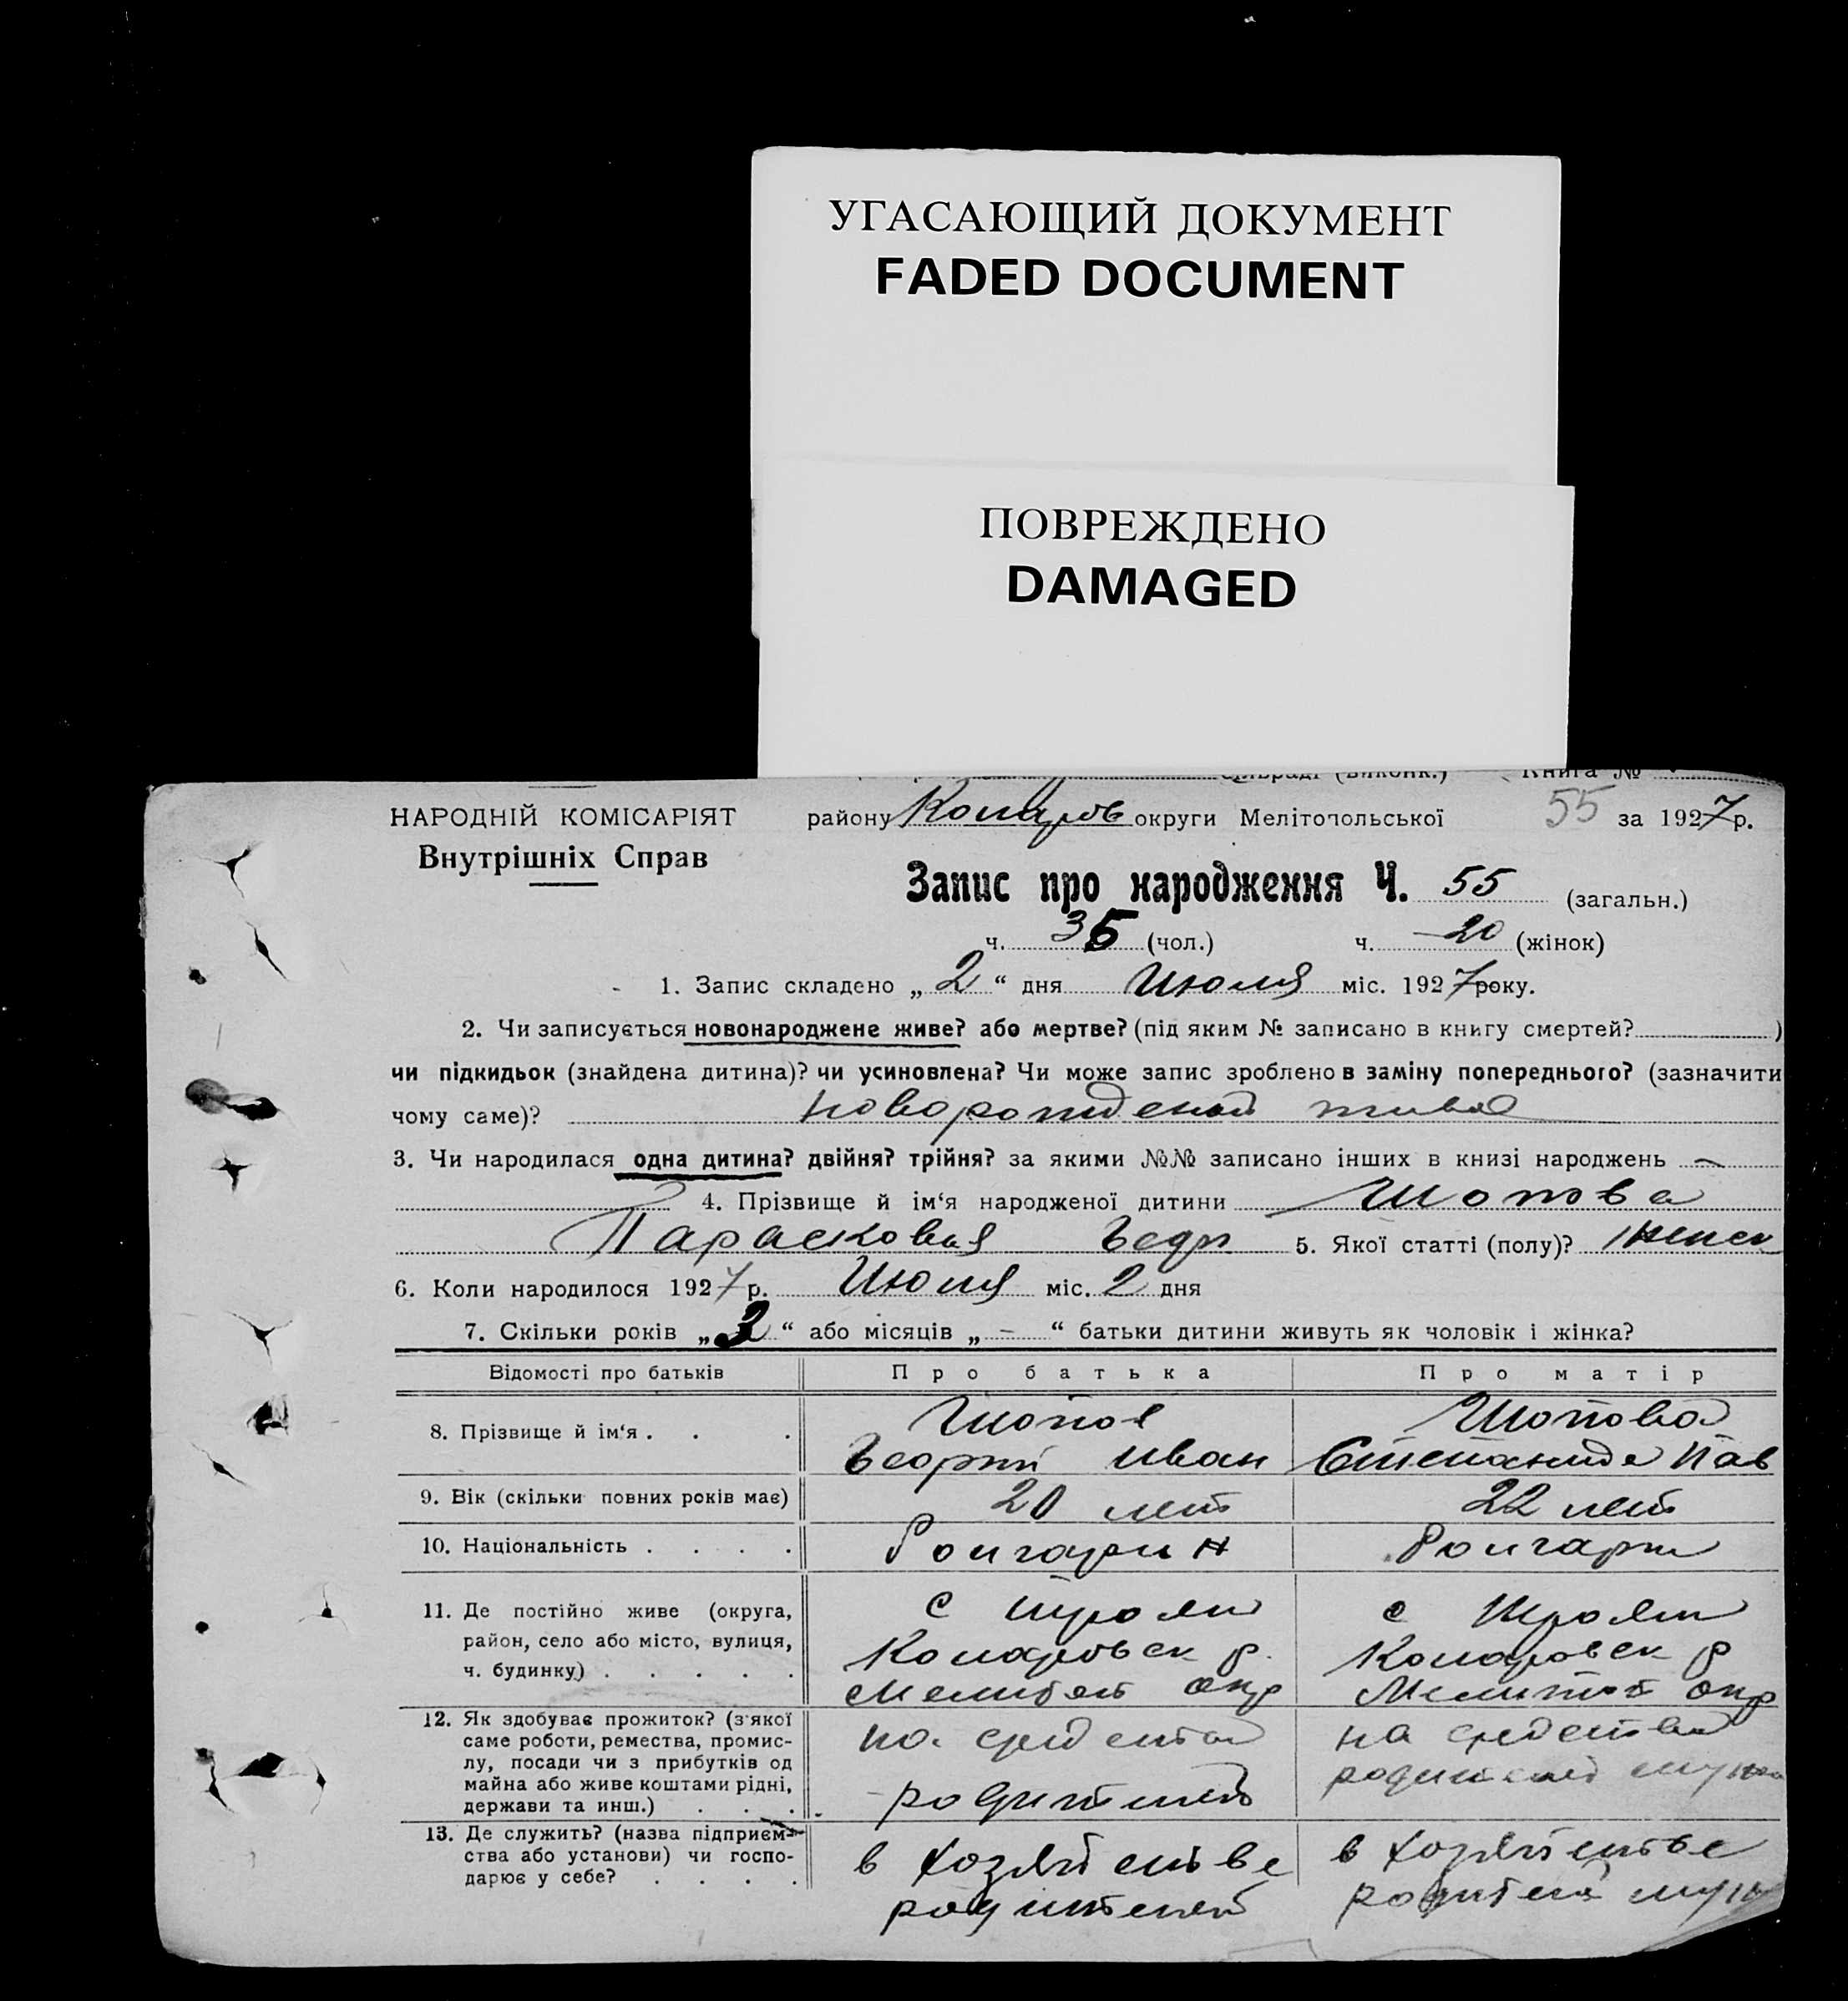 УГАСАЮЩИЙ ДОКУМЕНТ
FADED DOCUMENT
ПОВРЕЖДЕНО
DAMAGED
(виконк.) Книга №
НАРОДНІЙ КОМІСАРІЯТ
Внутрішніх Справ
району Комаров округи Мелітопольської 55 за 1927 р.
Запис про народження Ч. 55 (загальн.)
ч. 35 (чол.) ч. 20 (жінок)
1. Запис складено „ 2 “ дня Июля міс. 1927 року.
2. Чи записується новонароджене живе? або мертве? (під яким № записано в книгу смертей? )
чи підкидьок (знайдена дитина)? чи усиновлена? Чи може запис зроблено в заміну попереднього? (зазначити
чому саме)? новорожденой жива
3. Чи народилася одна дитина? двійня? трійня? за якими №№ записано інших в книзі народжень —
4. Прізвище й ім‘я народженої дитини Шопова
Парасковия Геор 5. Якої статті (полу)? женск
6. Коли народилося 1927 р. Июля міс. 2 дня
7. Скільки років „ “ або місяців „ – “ батьки дитини живуть як чоловік і жінка?
Відомості про батьків Про батька Про матір
8. Прізвище й ім‘я . . . Шопов Шопова
Георгий Иван Степанида Пав
9. Вік (скільки повних років має) 20 лет 22 лет
10. Національність . . . .
11. Де постійно живе (округа, с Троян с Троян
район, село або місто, вулиця, Комаровск р. Комаровск р
ч. будинку) . . . . . Мелитоп окр Мелитоп окр
12. Як здобуває прожиток? (з якої на средства на средства
саме роботи, ремества, промис-
лу, посади чи з прибутків од родителей мужа
майна або живе коштами рідні, родителей
держави та инш.) . . . .
13. Де служить? (назва підприєм- в хозяйстве в хозяйстве
ства або установи) чи госпо-
дарює у себе? . . . . родителей родителей мужа